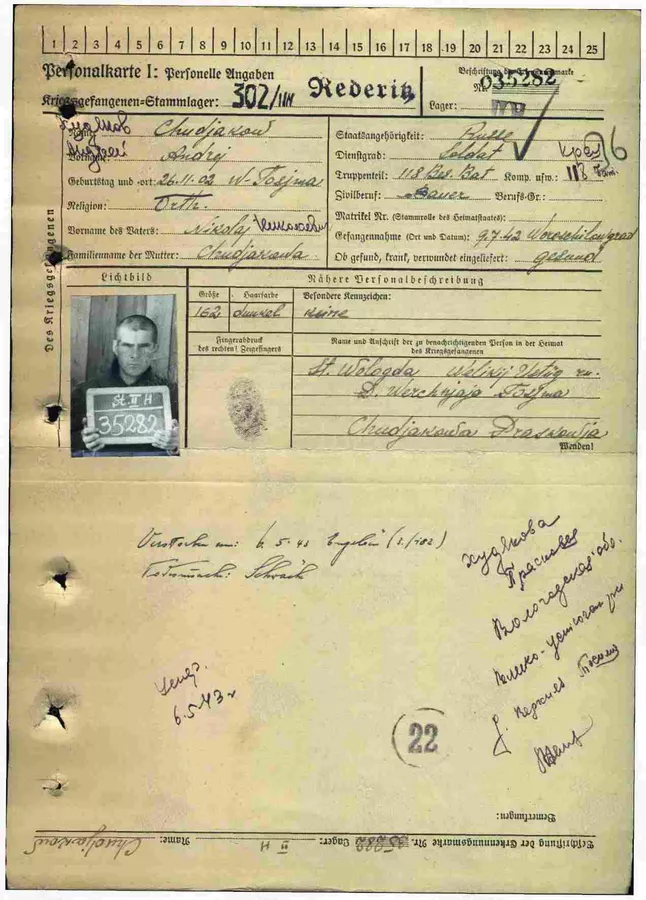 1 2 3 4 5 6 7 8 9 10 11 12 13 14 15 16 17 18 19 20 21 22 23 24 25
Personalkarte I: Personelle Angaben
Kriegsgefangenen=Stammlager: 302/IIH Rederitz
Beschriftung der Erkennungsmarke
Nr. 035282
Lager:
Des Kriegsgefangenen
Худяков
Name: Chudjakow
Андрей
Vorname: Andrej
Geburtstag und -ort: 26.11.02 W-Tosjma
Religion: Orth.
Vorname des Vaters: Nikolaj Николаевич
Familienname der Mutter: Chudjakowa
Staatsangehörigkeit: Russe
Dienstgrad: Soldat
Truppenteil: 118 Bes. Bat Komp. usw.: 118
Zivilberuf: Bauer Berufs-Gr.:
Matrikel Nr. (Stammrolle des Heimatstaates):
Gefangennahme (Ort und Datum): 9.7.42 Woroschilowgrad
Ob gesund, krank, verwundet eingeliefert: gesund
Lichtbild
Nähere Personalbeschreibung
Größe Haarfarbe Besondere Kennzeichen:
162 dunkel keine
Fingerabdruck
des rechten! Zeigefingers
Name und Anschrift der zu benachrichtigenden Person in der Heimat
des Kriegsgefangenen
St. II H
35282
St. Wologda Welikij Ustig
D. Werchnjaja Tosjma
Chudjakowa Praskowja
Wenden!
6.5.43
Худякова
Прасковья
Вологодская обл.
Велико-Устюг
Умер.
6.5.43 г
22
Bemerkungen:
Beschriftung der Erkennungsmarke Nr. 35282 Lager: II H Name: Chudjakow